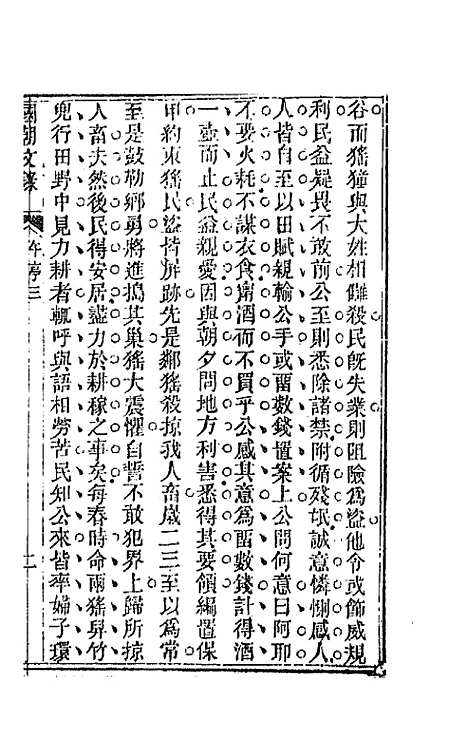 谷而猺獞與大姓相讎殺民旣失業則阻險爲盜他令或飾威規
利民益疑畏不敢前公至則悉除諸禁附循殘氓誠意憐惻感人
人皆自至以田賦親輸公手或畱數錢置案上公問何意曰阿耶
不要火耗不謀衣食甯酒而不買乎公感其意爲畱數錢計得酒
一壺而止民益親愛因與朝夕問地方利害悉得其要領編置保
甲約束猺民盜皆屛跡先是鄰猺殺掠我人畜歲二三至以爲常
至是鼓勒鄉勇將進搗其巢猺大震懼自誓不敢犯界上歸所掠
人畜夫然後民得安居盡力於耕稼之事矣每春時命兩猺舁竹
兜行田野中見力耕者輒呼與語相勞苦民知公來皆率婦子環
國朝文錄 序三 二